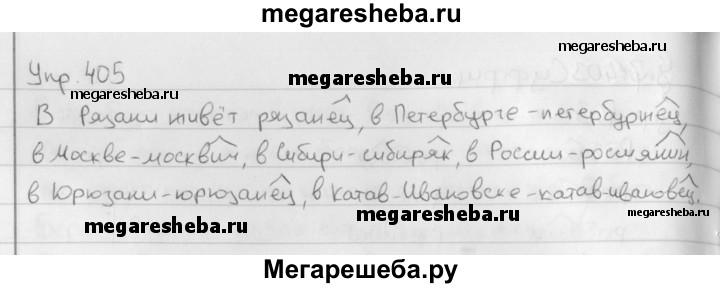 megaresheba.ru
megaresheba.ru
Упр. 405
megaresheba.ru
megaresheba.ru
В Рязани живёт рязанец, в Петербурге - петербуржец,
в Москве - москвич, в Сибири - сибиряк, в России - россиянин,
в Юрюзани - юрюзанец, в Катав-Ивановске - катав-ивановец.
megaresheba.ru
megaresheba.ru
megaresheba.ru
Мегарешеба.ру